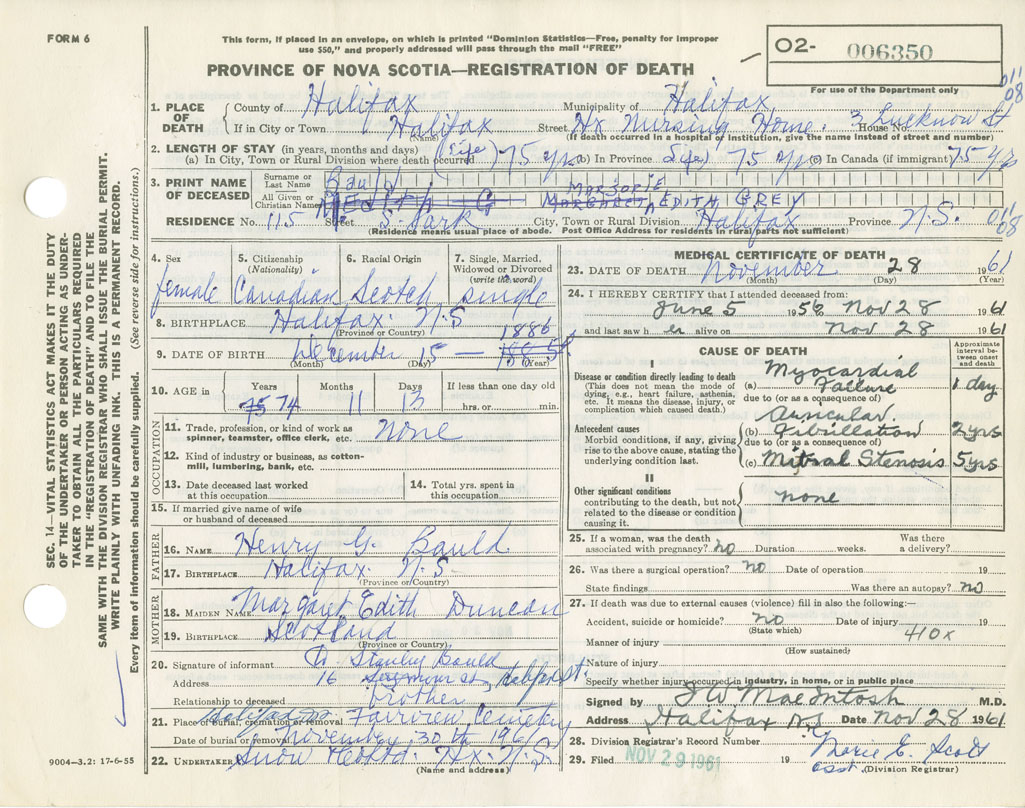 FORM 6
This form, if placed in an envelope, on which is printed "Dominion Statistics—Free, penalty for improper
use $50," and properly addressed will pass through the mail "FREE"
PROVINCE OF NOVA SCOTIA—REGISTRATION OF DEATH
O2- 006350
For use of the Department only
011
08
1. PLACE OF DEATH
County of Halifax Municipality of Halifax
If in City or Town Halifax Street Hx Nursing Home. House No. 3 Lucknow St
(If death occurred in a hospital or institution, give the name instead of street and number)
2. LENGTH OF STAY (in years, months and days) (life)
(a) In City, Town or Rural Division where death occurred 75 yrs (b) In Province (life) 75 yrs (c) In Canada (if immigrant) 75 yrs
3. PRINT NAME OF DECEASED
Surname or Last Name Bauld
All Given or Christian Names MARJORIE EDITH GREY
RESIDENCE No. 115 Street S. Park City, Town or Rural Division Halifax Province N.S.
011
08
(Residence means usual place of abode. Post Office Address for residents in rural parts not sufficient)
4. Sex female
5. Citizenship (Nationality) Canadian
6. Racial Origin Scotch
7. Single, Married, Widowed or Divorced (write the word) single
8. BIRTHPLACE Halifax N.S
(Province or Country)
9. DATE OF BIRTH December 15 — 1886
(Month) (Day) (Year)
10. AGE in Years 75 74 Months 11 Days 13 If less than one day old
hrs. or min.
OCCUPATION
11. Trade, profession, or kind of work as
spinner, teamster, office clerk, etc. none
12. Kind of industry or business, as cotton-
mill, lumbering, bank, etc.
13. Date deceased last worked
at this occupation
14. Total yrs. spent in
this occupation
15. If married give name of wife
or husband of deceased
FATHER
16. NAME Henry G. Bauld
17. BIRTHPLACE Halifax N.S
(Province or Country)
MOTHER
18. MAIDEN NAME Margaret Edith Duncan
19. BIRTHPLACE Scotland
(Province or Country)
20. Signature of informant Stanley Bauld
Address 16
Relationship to deceased brother
21. Place of burial, cremation or removal Fairview Cemetery
Date of burial or removal November 30th 1961
22. UNDERTAKER Snow Hx. N.S.
(Name and address)
MEDICAL CERTIFICATE OF DEATH
23. DATE OF DEATH November 28 1961
(Month) (Day) (Year)
24. I HEREBY CERTIFY that I attended deceased from:
June 5 1956 Nov 28 1961
and last saw her alive on Nov 28 1961
CAUSE OF DEATH
Approximate interval between onset and death
I
Disease or condition directly leading to death
(This does not mean the mode of
dying, e.g., heart failure, asthenia,
etc. It means the disease, injury, or
complication which caused death.)
(a) Myocardial Failure 1 day
due to (or as a consequence of)
Antecedent causes
Morbid conditions, if any, giving
rise to the above cause, stating the
underlying condition last.
(b) Auricular Fibrillation 2 yrs
due to (or as a consequence of)
(c) Mitral Stenosis 5 yrs
II
Other significant conditions
contributing to the death, but not
related to the disease or condition
causing it.
none
25. If a woman, was the death
associated with pregnancy? no Duration weeks. Was there
a delivery?
26. Was there a surgical operation? no Date of operation 19
State findings Was there an autopsy? no
27. If death was due to external causes (violence) fill in also the following:—
Accident, suicide or homicide? no Date of injury 19
(State which)
410x
Manner of injury
(How sustained)
Nature of injury
Specify whether injury occurred in industry, in home, or in public place
Signed by J W MacIntosh M.D.
Address Halifax N.S Date Nov 28 1961
28. Division Registrar's Record Number
29. Filed NOV 29 1961 19 Marie E. Scott
asst. (Division Registrar)
9004—3.2: 17-6-55
SEC. 14—VITAL STATISTICS ACT MAKES IT THE DUTY
OF THE UNDERTAKER OR PERSON ACTING AS UNDER-
TAKER TO OBTAIN ALL THE PARTICULARS REQUIRED
IN THE "REGISTRATION OF DEATH" AND TO FILE THE
SAME WITH THE DIVISION REGISTRAR WHO SHALL ISSUE THE BURIAL PERMIT.
WRITE PLAINLY WITH UNFADING INK. THIS IS A PERMANENT RECORD.
Every item of information should be carefully supplied. (See reverse side for instructions.)